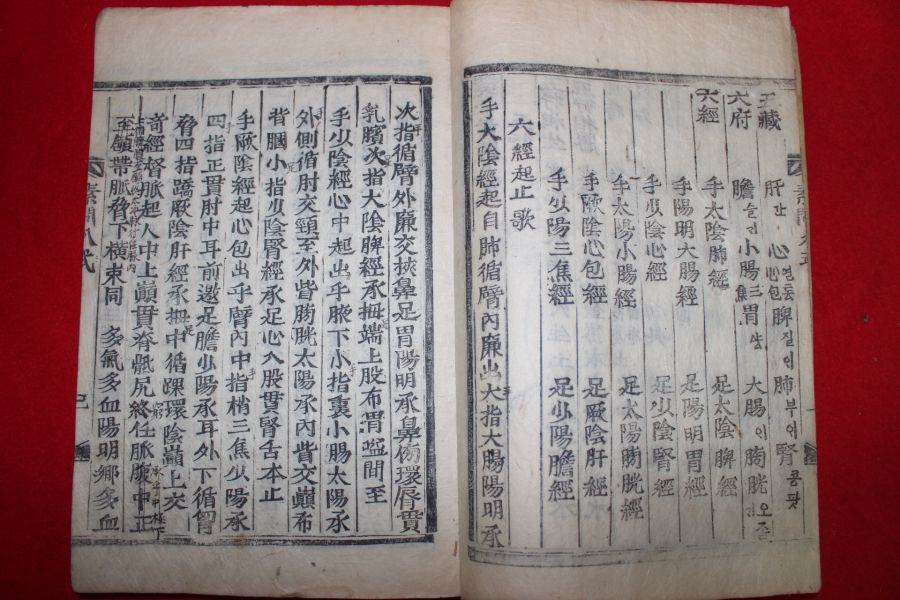 五藏 肝간 心 心包 脾 肺부어 腎콩팟
六府 膽 小腸 三焦 胃 大腸 胱
六經 手太陰肺經 足太陰脾經
手陽明大腸經 足陽明胃經
手少陰心經 足少陰腎經
手太陽小腸經 足太陽胱經
手厥陰心包經 足厥陰肝經
手少陽三焦經 足少陽膽經
六經起止歌
手大陰經起自肺循臂內廉出大指大腸陽明承
次指循臂外廉交挾鼻足胃陽明承鼻傍環唇貫
乳臍次指大陰脾經承拇端上股布胃間至
手少陰經心中起出乎腋下小指裏小腸太陽承
外側循肘交頸至外眥胱太陽承內眥交巓布
背膕小指少陰腎經承足心入股貫腎舌本止
手厥陰經起心包出乎臂內中指梢三焦少陽承
四指正貫肘中耳前邀足膽少陽承耳外下循胷
脅四指蹻厥陰肝經承拇中循踝環陰巓上交
奇經督脈起人中上巓貫脊骶尻終任脈腹中正
至 帶脈脅下橫束同 多氣多血陽明鄕多血
素問八式